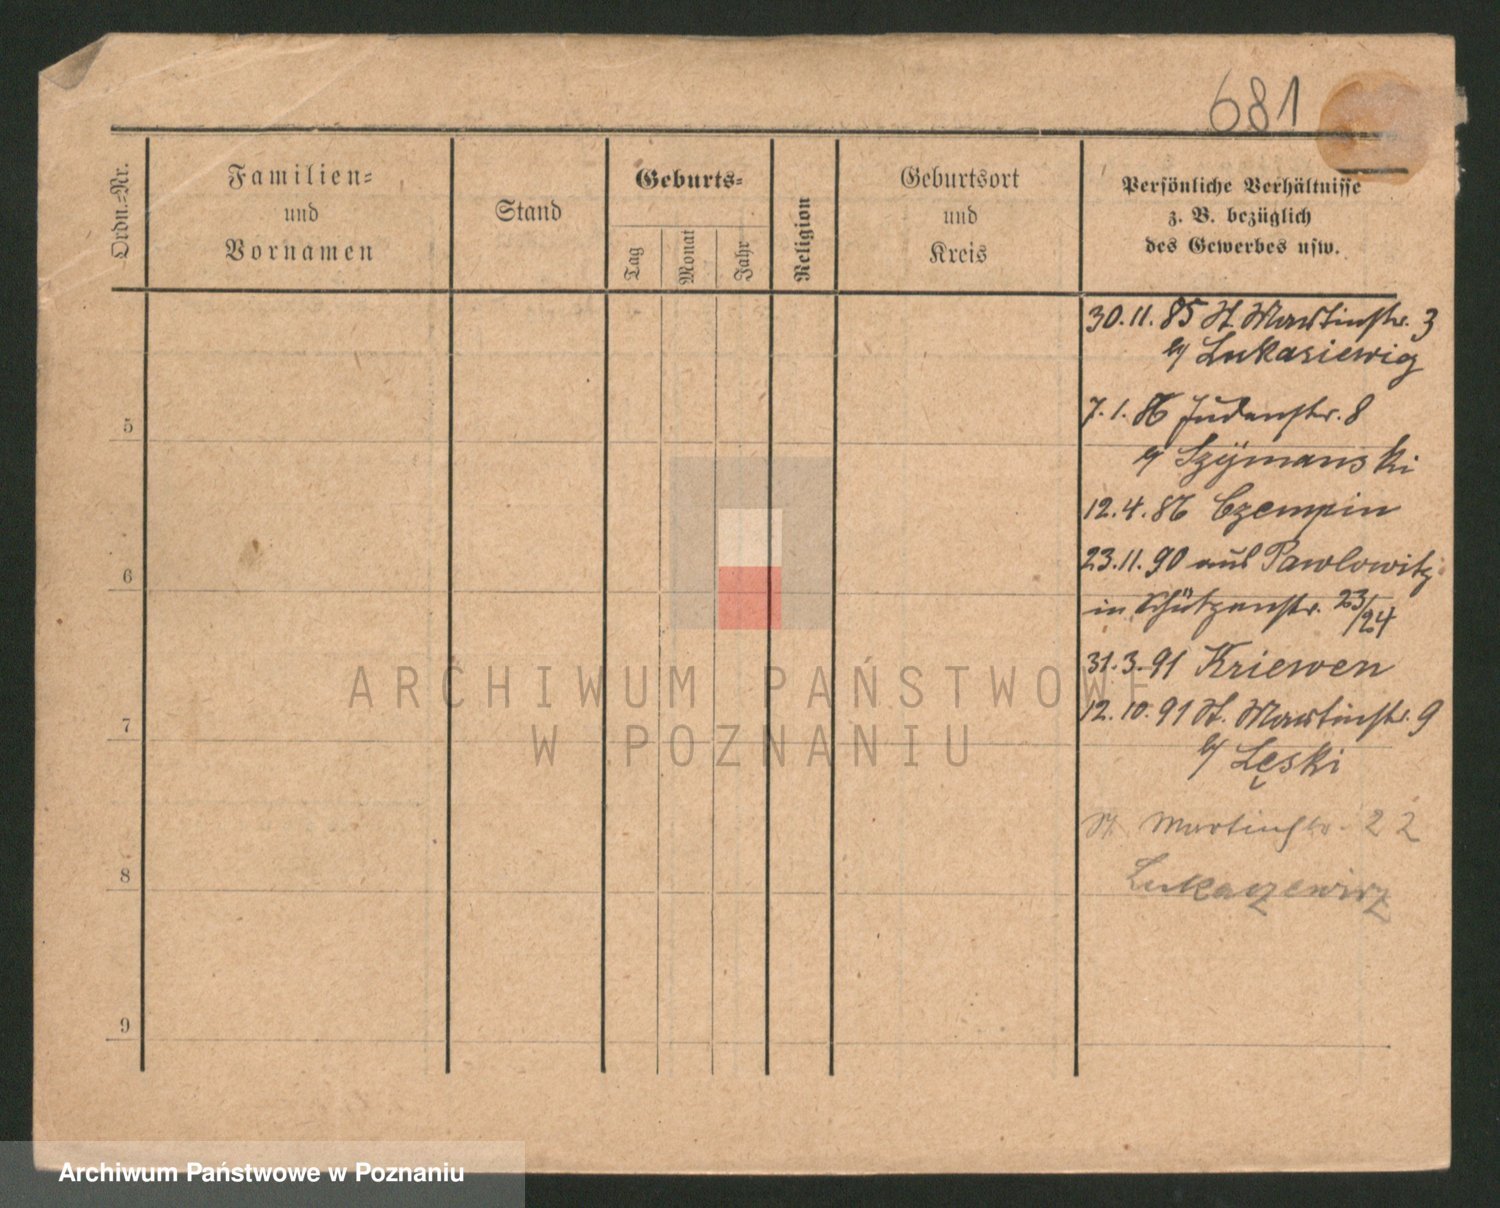 681
Ordn.-Nr.
Familien-
und
Vornamen
Stand
Geburts-
Tag
Monat
Jahr
Religion
Geburtsort
und
Kreis
Persönliche Verhältnisse
z. B. bezüglich
des Gewerbes usw.
30.11.85 St. Martinstr. 3
b/ Lukasiewig
7.1.86 Judenstr. 8
b/ Szÿmanski
5
12.4.86 Czempin
23.11.90 aus Pawlowitz
6
in Schützenstr. 23/24
31.3.91 Kriewen
12.10.91 St. Martinstr. 9
7
b/ Lęski
St. Martinstr. 22
8
Lukaszewicz
9
ARCHIWUM PAŃSTWOWE
W POZNANIU
Archiwum Państwowe w Poznaniu